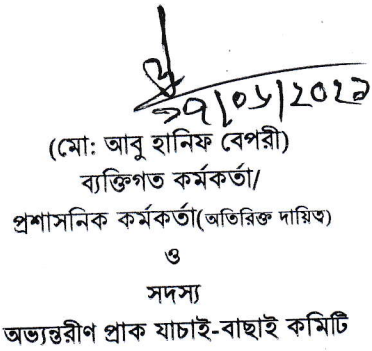 (মো: আবু হানিফ বেপরী)
ব্যক্তিগত কর্মকর্তা/
প্রশাসনিক কর্মকর্তা(অতিরিক্ত দায়িত্ব)
ও
সদস্য
অভ্যন্তরীণ প্রাক যাচাই-বাছাই কমিটি